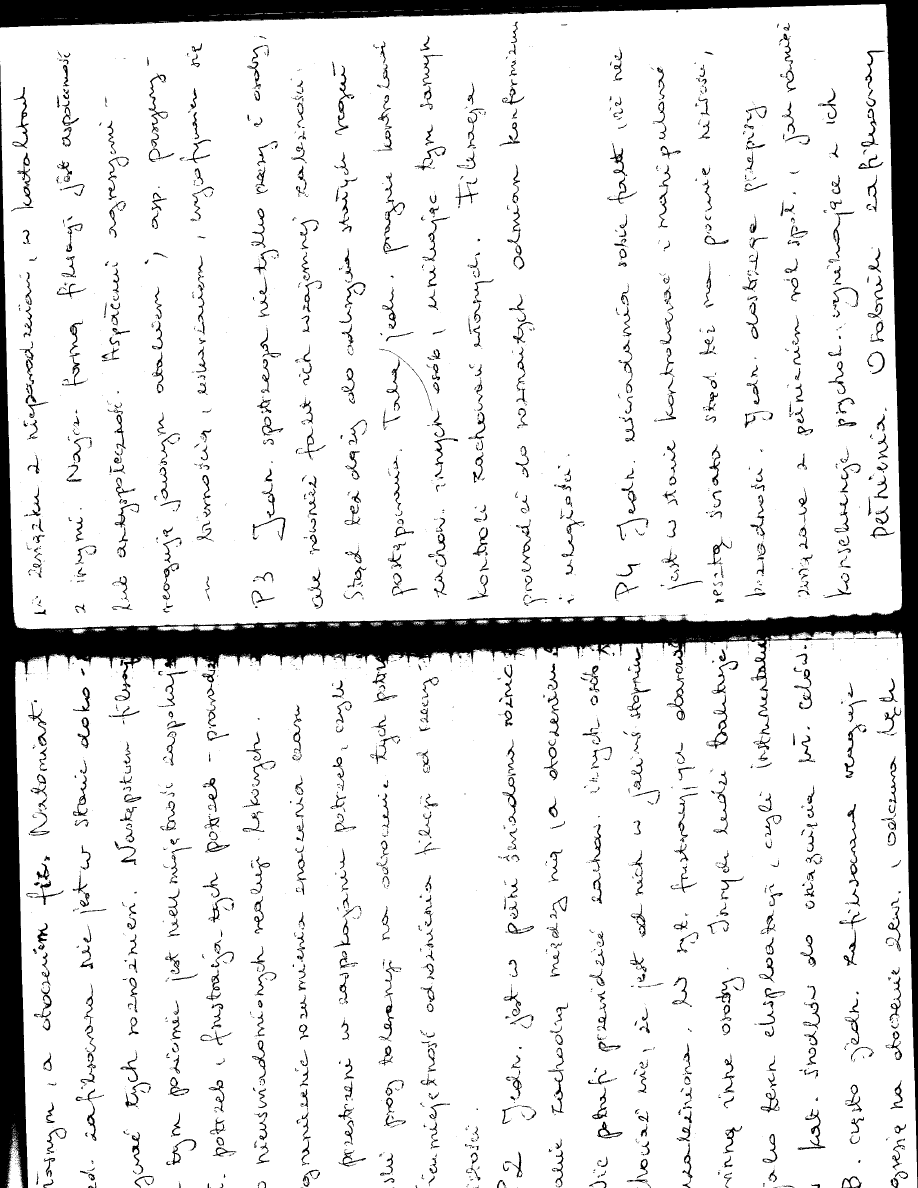 własnym, a otoczeniem fiz. Natomiast
jedn. zafiksowana nie jest w stanie doko-
nywać tych rozróżnień. Następstwem fiksacji
tym poziomie jest nieumiejętność zaspokaj
potrzeb i frustracja tych potrzeb – prowadzi
o nieuświadomionych reakcji lękowych.
graniczenie rozumienia znaczenia czasu
przestrzeni w zaspokajaniu potrzeb, czyli
niski próg tolerancji na odroczenie tych potrz
nieumiejętność odróżnienia fikcji od rzeczy
istości.
P2 Jedn. jest w pełni świadoma różnic
jakie zachodzą między nią, a otoczeniem.
Nie potrafi przewidzieć zachow. innych osób
chociaż wie, że jest od nich w jakimś stopniu
uzależniona. W syt. frustrującej obarcza
winną inne osoby. Innych ludzi traktuje
jako teren eksploatacji, czyli instrumentalnie
w kat. środków do osiągnięcia wł. celów.
B. często jedn. zafiksowana reaguje
agresję na otoczenie zewn. i odczuwa lęk
w związku z niepowodzeniami, w kontaktach
z innymi. Najcz. formą fiksacji jest aspołeczność
lub antyspołeczność. Aspołeczni agresywni –
reagują jawnym atakiem, asp. pasywny –
– biernością, uskarżaniem, wycofywaniem się
P3 Jedn. spostrzega nie tylko rzeczy i osoby,
ale również fakt ich wzajemnej zależności.
Stąd też dąży do odkrycia stałych reguł
postępowania. Taka jedn. pragnie kontrolować
zachow. innych osób, unikając tym samym
kontroli zachowań własnych. Fiksacja
prowadzi do rozmaitych odmian konformizmu
i uległości.
P4 Jedn. uświadamia sobie fakt, że nie
jest w stanie kontrolować i manipulować
resztą świata stąd też ma poczucie niższości,
bezradności. Jedn. dostrzega przepisy
związane z pełnieniem ról społ., jak również
konsekwencje psychol. wynikające z ich
pełnienia. Osobnik zafiksowany